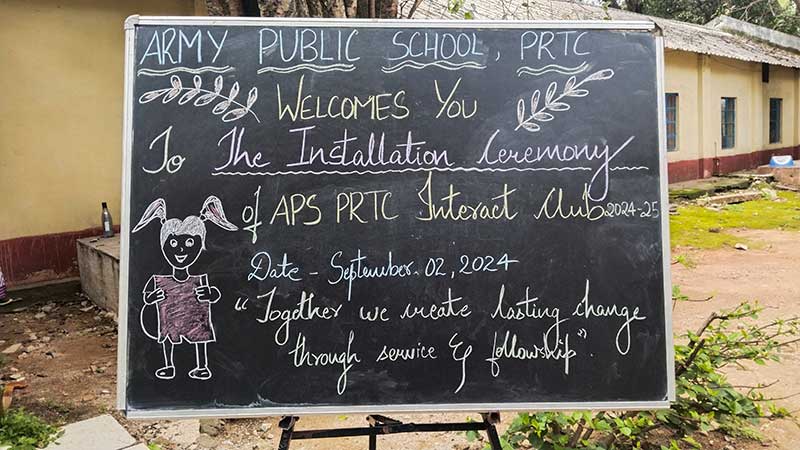 ARMY PUBLIC SCHOOL, PRTC
WELCOMES YOU
To The Installation Ceremony
of APS PRTC Interact Club 2024-25
Date - September 02, 2024
"Together we create lasting change
through service & fellowship".